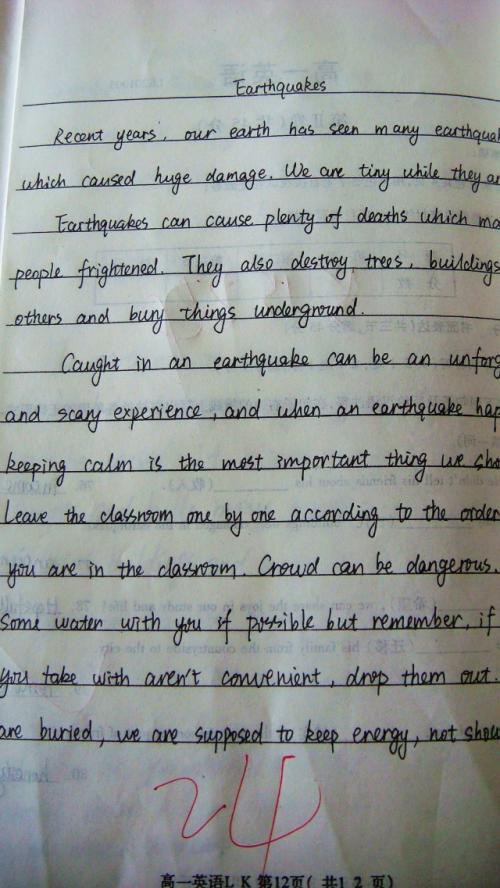 Earthquakes
Recent years, our earth has seen many earthquak
which caused huge damage. We are tiny while they ar
Earthquakes can cause plenty of deaths which ma
people frightened. They also destroy trees, buildings
others and bury things underground.
Caught in an earthquake can be an unforg
and scary experience, and when an earthquake hap
keeping calm is the most important thing we sho
Leave the classroom one by one according to the order
you are in the classroom. Crowd can be dangerous.
Some water with you if possible but remember, if
you take with aren't convenient, drop them out.
are buried, we are supposed to keep energy, not shou
24
高一英语L K 第12页( 共1 2 页)